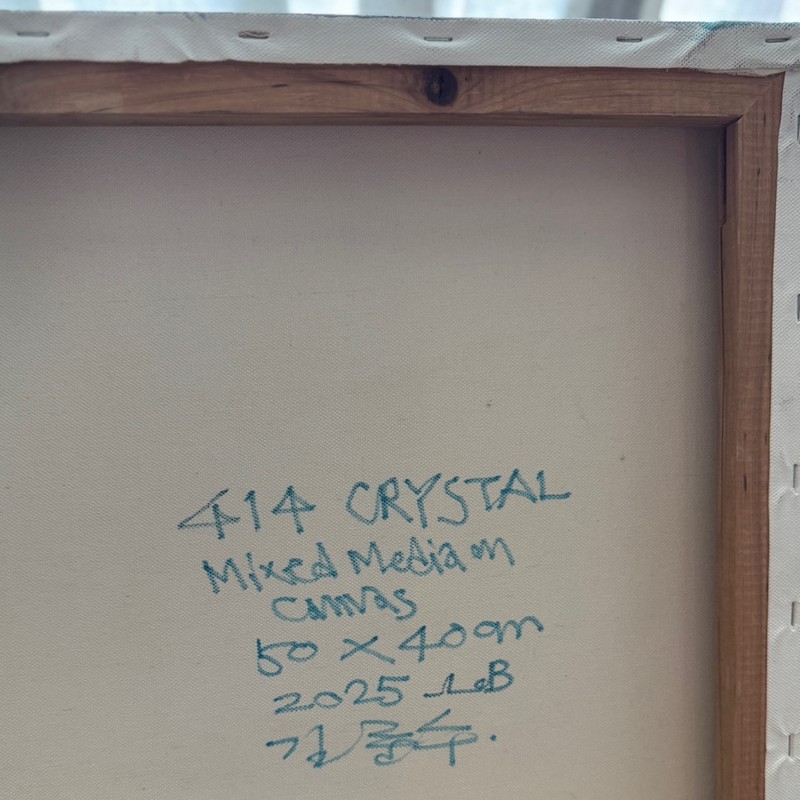 414 CRYSTAL
Mixed Media on
Canvas
50 × 40 cm
2025
김종수.